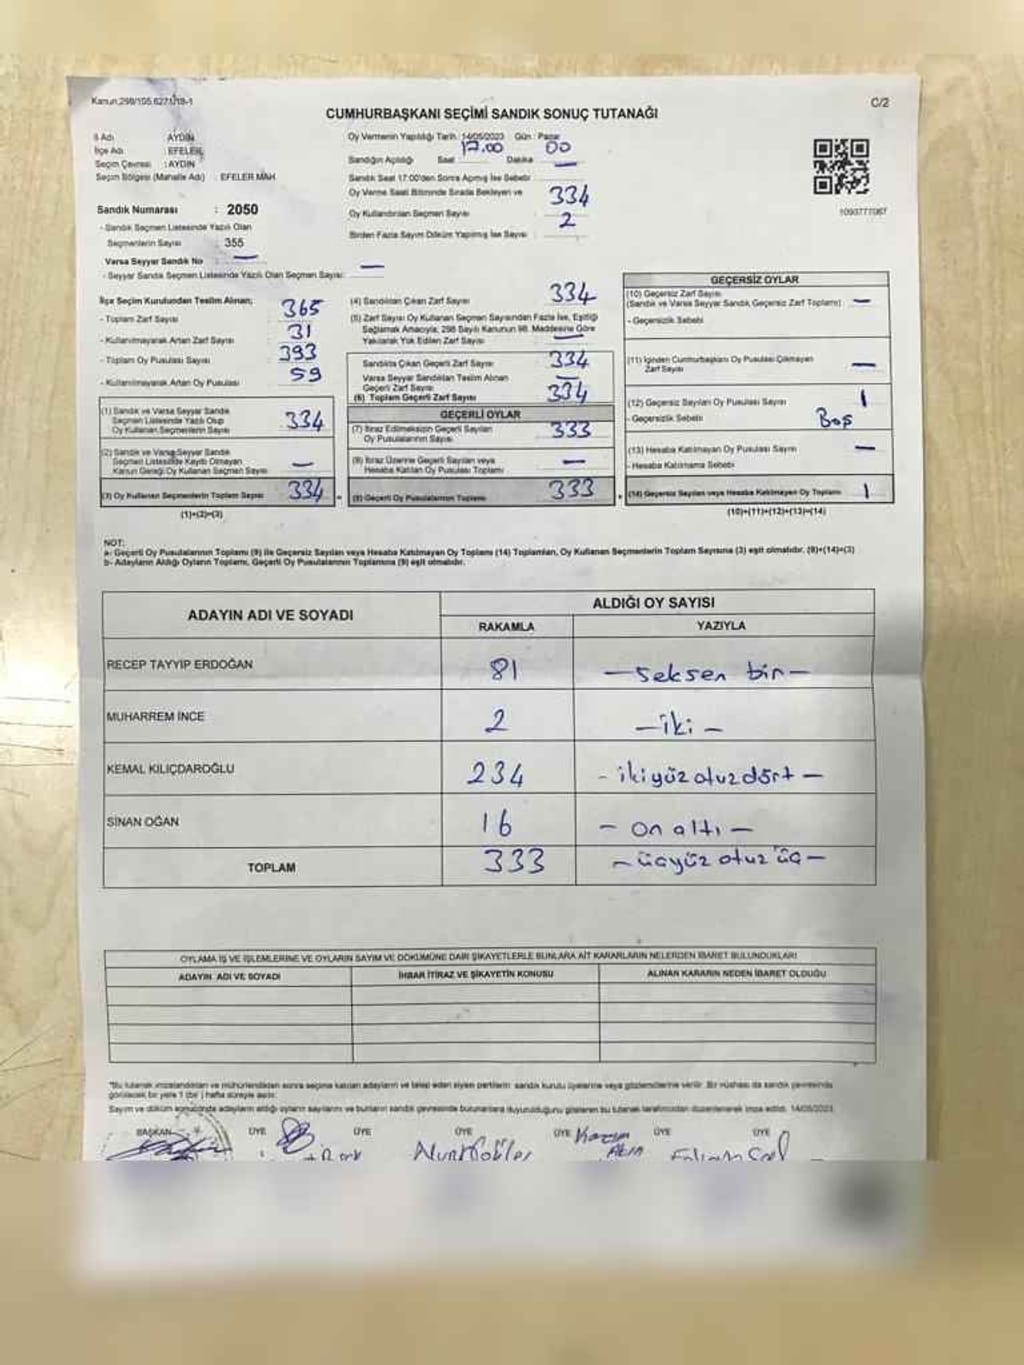 Kanun;298/105.6271/18-1
C/2
CUMHURBAŞKANI SEÇİMİ SANDIK SONUÇ TUTANAĞI
İl Adı AYDIN
İlçe Adı EFELER
Seçim Çevresi : AYDIN
Seçim Bölgesi (Mahalle Adı) : EFELER MAH
Sandık Numarası : 2050
- Sandık Seçmen Listesinde Yazılı Olan
Seçmenlerin Sayısı : 355
Varsa Seyyar Sandık No : —
- Seyyar Sandık Seçmen Listesinde Yazılı Olan Seçmen Sayısı: —
Oy Vermenin Yapıldığı Tarih : 14/05/2023 Gün : Pazar
Sandığın Açıldığı Saat 17.00 Dakika 00
Sandık Saat 17:00'den Sonra Açılmış İse Sebebi —
Oy Verme Saati Bitiminde Sırada Bekleyen ve
Oy Kullandırılan Seçmen Sayısı 334
Birden Fazla Sayım Döküm Yapılmış İse Sayısı : 2
1093777067
İlçe Seçim Kurulundan Teslim Alınan;
- Toplam Zarf Sayısı 365
- Kullanılmayarak Artan Zarf Sayısı 31
- Toplam Oy Pusulası Sayısı 393
- Kullanılmayarak Artan Oy Pusulası 59
(1) Sandık ve Varsa Seyyar Sandık
Seçmen Listesinde Yazılı Olup
Oy Kullanan Seçmenlerin Sayısı 334
(2) Sandık ve Varsa Seyyar Sandık
Seçmen Listesinde Kayıtlı Olmayan
Kanun Gereği Oy Kullanan Seçmen Sayısı —
(3) Oy Kullanan Seçmenlerin Toplam Sayısı 334
(1)+(2)=(3)
(4) Sandıktan Çıkan Zarf Sayısı 334
(5) Zarf Sayısı Oy Kullanan Seçmen Sayısından Fazla İse, Eşitliği
Sağlamak Amacıyla, 298 Sayılı Kanunun 98. Maddesine Göre
Yakılarak Yok Edilen Zarf Sayısı —
Sandıkta Çıkan Geçerli Zarf Sayısı 334
Varsa Seyyar Sandıktan Teslim Alınan
Geçerli Zarf Sayısı —
(6) Toplam Geçerli Zarf Sayısı 334
GEÇERLİ OYLAR
(7) İtiraz Edilmeksizin Geçerli Sayılan
Oy Pusulalarının Sayısı 333
(8) İtiraz Üzerine Geçerli Sayılan veya
Hesaba Katılan Oy Pusulası Toplamı —
(9) Geçerli Oy Pusulalarının Toplamı 333
GEÇERSİZ OYLAR
(10) Geçersiz Zarf Sayısı
(Sandık ve Varsa Seyyar Sandık Geçersiz Zarf Toplamı) —
- Geçersizlik Sebebi
(11) İçinden Cumhurbaşkanı Oy Pusulası Çıkmayan
Zarf Sayısı —
(12) Geçersiz Sayılan Oy Pusulası Sayısı 1
- Geçersizlik Sebebi Boş
(13) Hesaba Katılmayan Oy Pusulası Sayısı —
- Hesaba Katılmama Sebebi
(14) Geçersiz Sayılan veya Hesaba Katılmayan Oy Toplamı 1
(10)+(11)+(12)+(13)=(14)
NOT:
a- Geçerli Oy Pusulalarının Toplamı (9) ile Geçersiz Sayılan veya Hesaba Katılmayan Oy Toplamı (14) Toplamları, Oy Kullanan Seçmenlerin Toplam Sayısına (3) eşit olmalıdır. (9)+(14)=(3)
b- Adayların Aldığı Oyların Toplamı, Geçerli Oy Pusulalarının Toplamına (9) eşit olmalıdır.
ADAYIN ADI VE SOYADI ALDIĞI OY SAYISI
RAKAMLA YAZIYLA
RECEP TAYYİP ERDOĞAN 81 —seksen bir—
MUHARREM İNCE 2 —iki—
KEMAL KILIÇDAROĞLU 234 - ikiyüz otuz dört —
SİNAN OĞAN 16 — on altı —
TOPLAM 333 —üçyüz otuz üç—
OYLAMA İŞ VE İŞLEMLERİNE VE OYLARIN SAYIM VE DÖKÜMÜNE DAİR ŞİKAYETLERLE BUNLARA AİT KARARLARIN NELERDEN İBARET BULUNDUKLARI
ADAYIN ADI VE SOYADI İHBAR İTİRAZ VE ŞİKAYETİN KONUSU ALINAN KARARIN NEDEN İBARET OLDUĞU
*Bu tutanak imzalandıktan ve mühürlendikten sonra seçime katılan adayların ve talep eden siyasi partilerin sandık kurulu üyelerine veya gözlemcilerine verilir. Bir nüshası da sandık çevresinde
görülecek bir yere 1 (bir) hafta süreyle asılır.
Sayım ve döküm sonucunda adayların aldığı oyların sayılarını ve bunların sandık çevresinde bulunanlara duyurulduğunu gösteren bu tutanak tarafımızdan düzenlenerek imza edildi. 14/05/2023
BAŞKAN ÜYE ÜYE ÜYE ÜYE Kazım ÜYE ÜYE
Akın